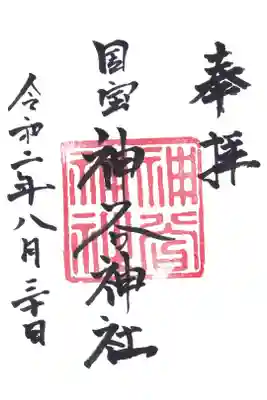 奉拝
国宝 神谷神社
令和二年八月三十日